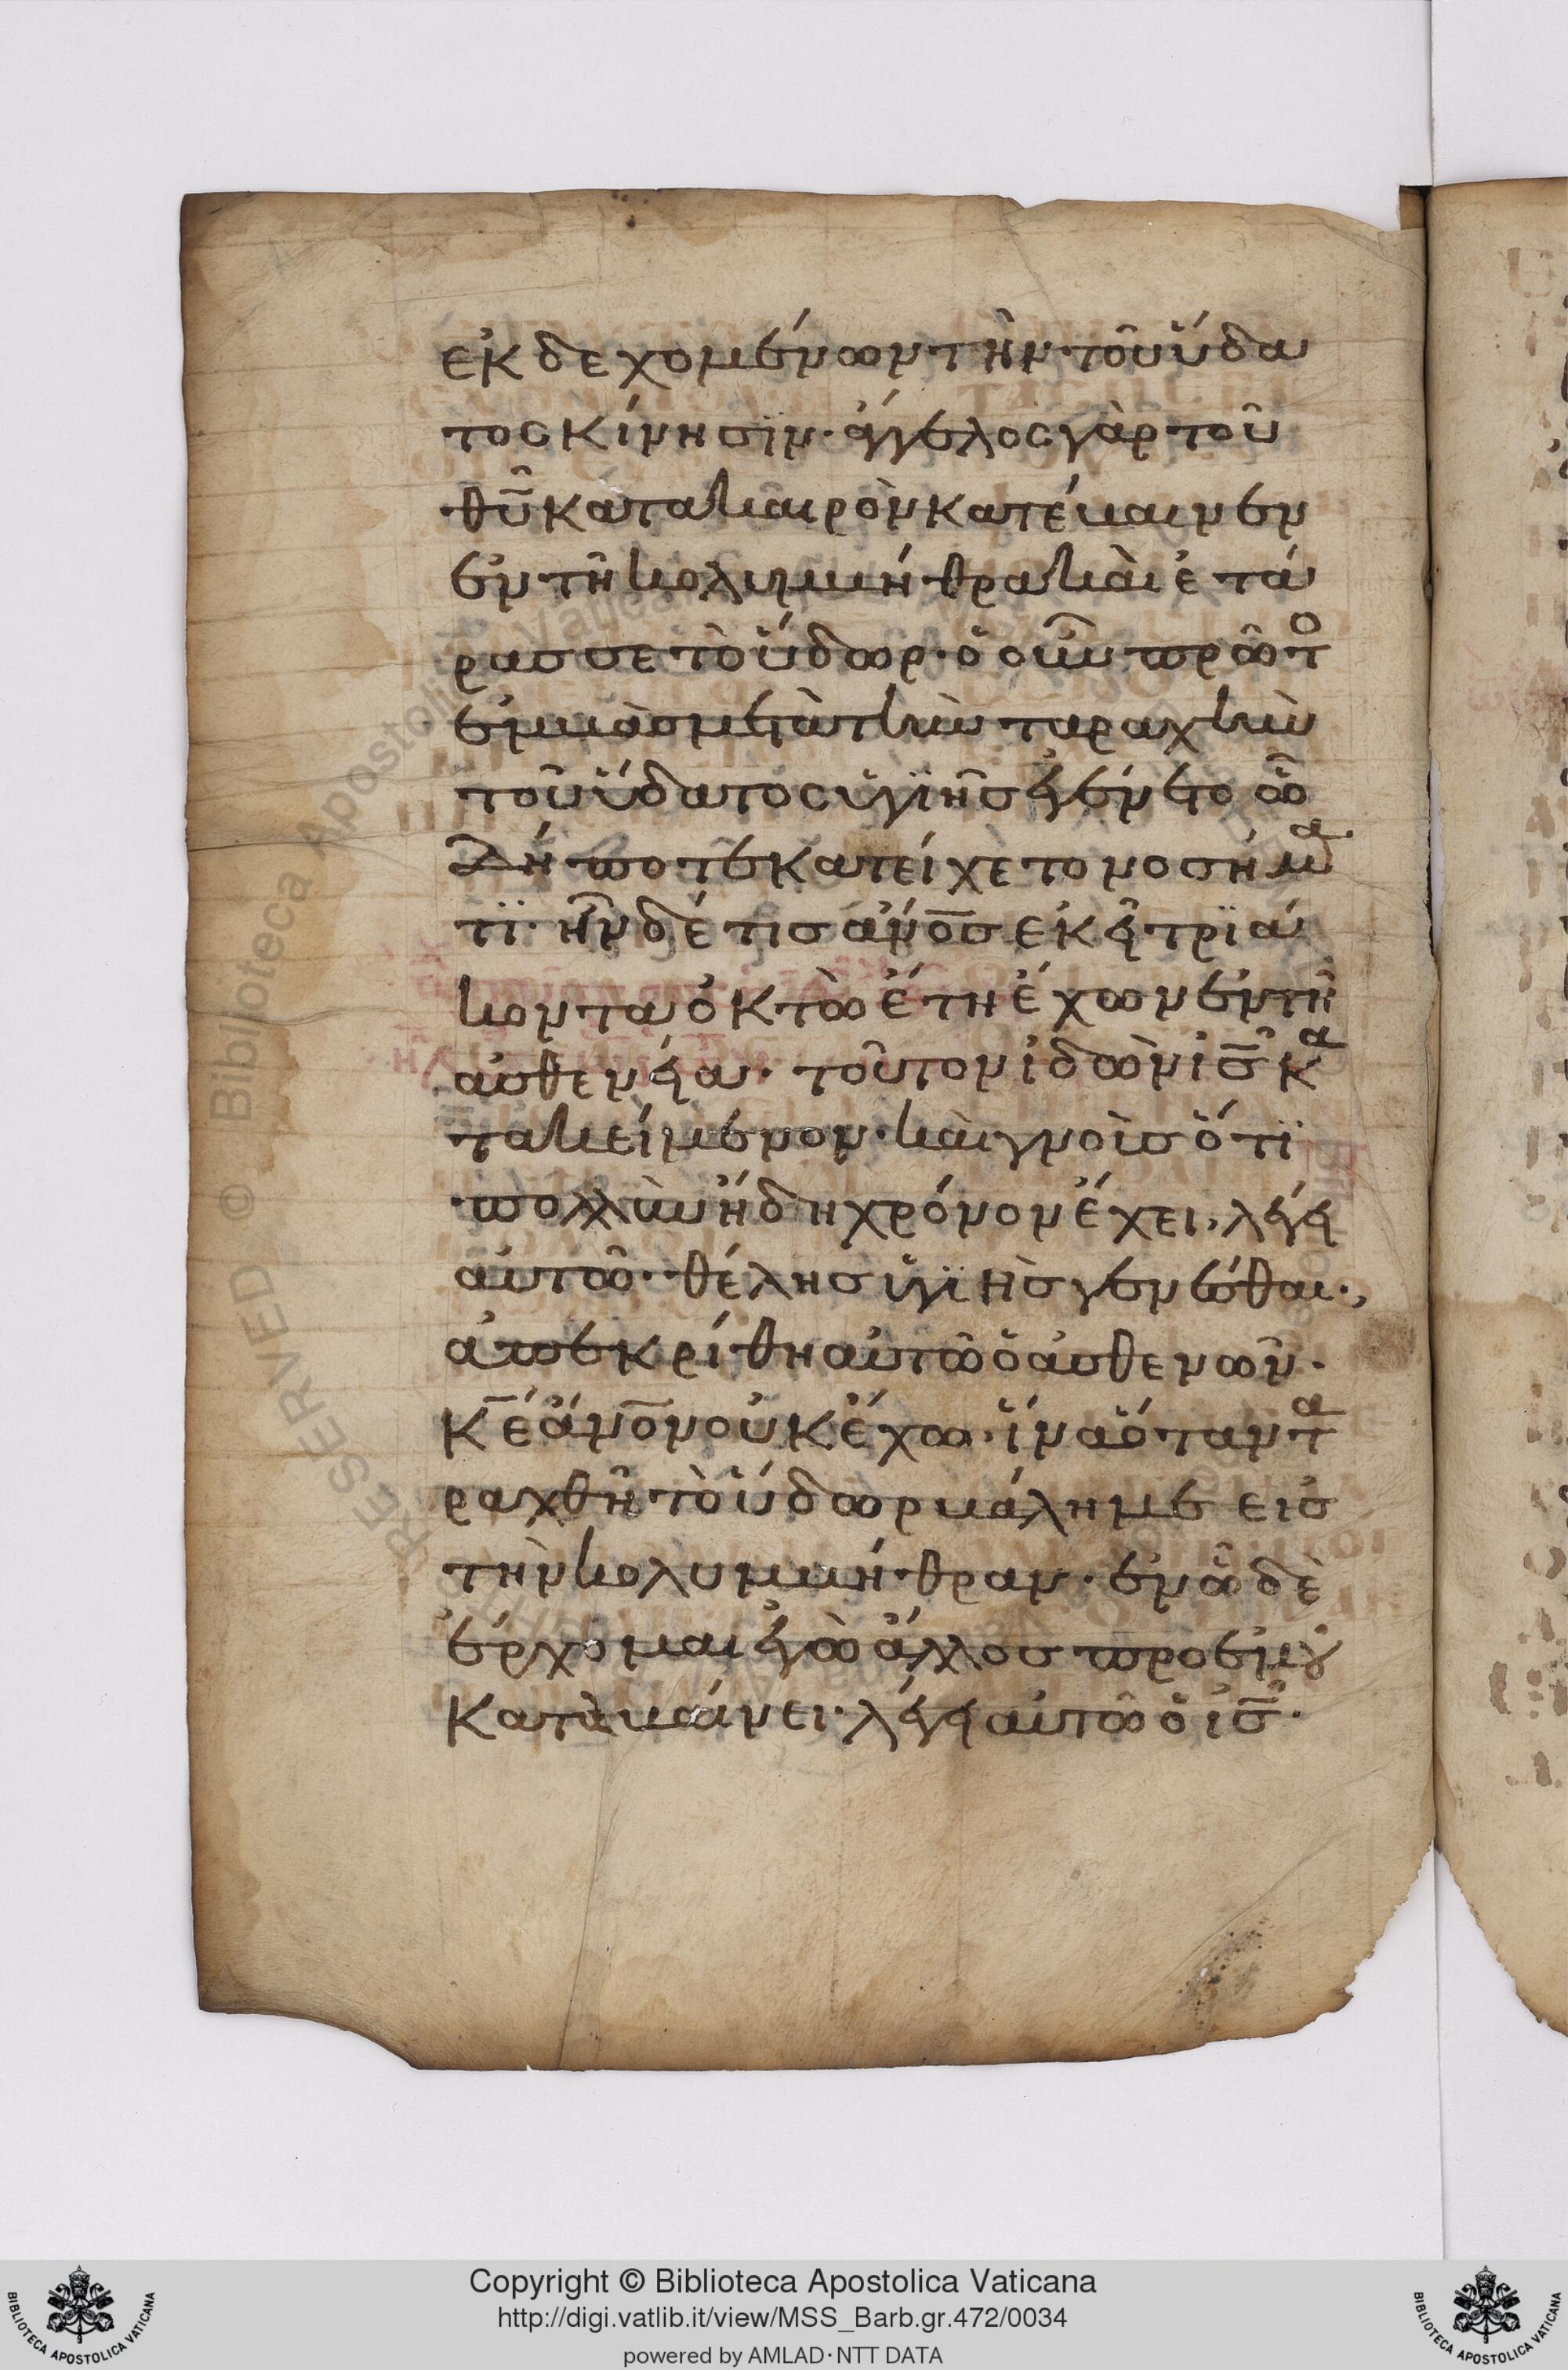 ἐκδεχομένων τὴν τοῦ ὕδα
τος κίνησϊν· ἄγγελος γὰρ τοῦ
θῦ κατα καιρὸν κατέβαινεν
ἐν τῆ κολυμβήθρα καὶ ἐτά
ρασσε τὸ ὕδωρ· ὁ οὖν πρῶτ
ἐμβὰσ μετὰ τὴν ταραχὴν
τοῦ ὕδατος ὑγϊῆσ ἐγένετο ὧ
δήποτε κατείχετο νοσήμα
τϊ· ἦν δέ τισ ἄνοσ ἐκεῖ τρϊά
κοντα ὀκτὼ ἔτη ἔχων ἐν τῆ
ἀσθενεία· τοῦτον ἰδὼν ὁ ισ κα
τακείμενον· καὶ γνοὺσ ὅτϊ
πολλὺν ἤδη χρόνον ἔχει, λέγει
αὐτῶ· θέλησ ὑγϊὴσ γενέσθαι·,
ἀπεκρίθη αὐτῶ ὁ ἀσθενῶν·
κέ ἄνον οὐκ ἔχω· ἵνα ὅταν τα
ραχθῆ τὸ ὕδωρ βάλη με εἰσ
τὴν κολυμβήθραν· ἐν ὧ δὲ
ἔρχομαι ἐγὼ ἄλλοσ προ ἐμοῦ
καταβαίνει· λέγει αὐτῶ ὁ ισ·
Copyright © Biblioteca Apostolica Vaticana
http://digi.vatlib.it/view/MSS_Barb.gr.472/0034
powered by AMLAD·NTT DATA
BIBLIOTECA APOSTOLICA VATICANA
BIBLIOTECA APOSTOLICA VATICANA